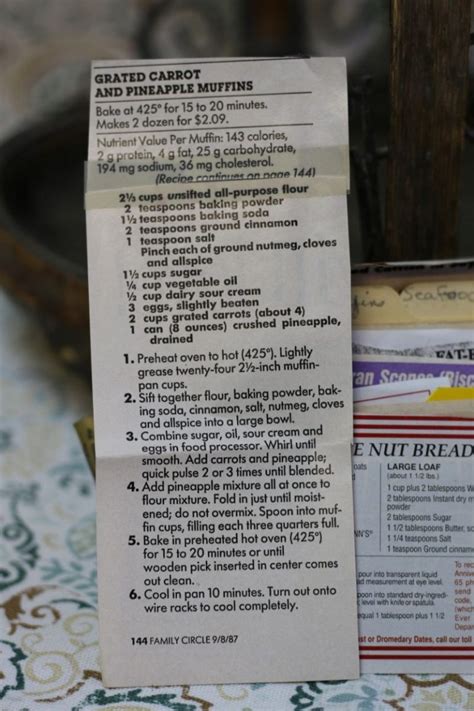 GRATED CARROT
AND PINEAPPLE MUFFINS
Bake at 425° for 15 to 20 minutes.
Makes 2 dozen for $2.09.
Nutrient Value Per Muffin: 143 calories,
2 g protein, 4 g fat, 25 g carbohydrate,
194 mg sodium, 36 mg cholesterol.
(Recipe continues on page 144)
2⅓ cups unsifted all-purpose flour
2 teaspoons baking powder
1½ teaspoons baking soda
2 teaspoons ground cinnamon
1 teaspoon salt
Pinch each of ground nutmeg, cloves
and allspice
1½ cups sugar
¼ cup vegetable oil
½ cup dairy sour cream
3 eggs, slightly beaten
2 cups grated carrots (about 4)
1 can (8 ounces) crushed pineapple,
drained
1. Preheat oven to hot (425°). Lightly
grease twenty-four 2½-inch muffin-
pan cups.
2. Sift together flour, baking powder, bak-
ing soda, cinnamon, salt, nutmeg, cloves
and allspice into a large bowl.
3. Combine sugar, oil, sour cream and
eggs in food processor. Whirl until
smooth. Add carrots and pineapple;
quick pulse 2 or 3 times until blended.
4. Add pineapple mixture all at once to
flour mixture. Fold in just until moist-
ened; do not overmix. Spoon into muf-
fin cups, filling each three quarters full.
5. Bake in preheated hot oven (425°)
for 15 to 20 minutes or until
wooden pick inserted in center comes
out clean.
6. Cool in pan 10 minutes. Turn out onto
wire racks to cool completely.
144 FAMILY CIRCLE 9/8/87
Seafood
FAT-
ran Scones
E NUT BREAD
oats
LARGE LOAF
(about 1 1/2 lbs.)
1 cup plus 2 tablespoons W
2 tablespoons Instant dry m
2 tablespoons
2 tablespoons Sugar
1 1/2 tablespoons Butter, s
1 1/4 teaspoons Salt
1 teaspoon Ground cinnamon
NN'S
pour into transparent liquid
ad measurement at eye level.
poon into standard dry-ingredi-
level with knife or spatula.
equal 1 tablespoon plus 1 1/2
To rec
Anniv
65 ph
send
code
(where
Ever
Depar
st or Dromedary Dates, call our toll